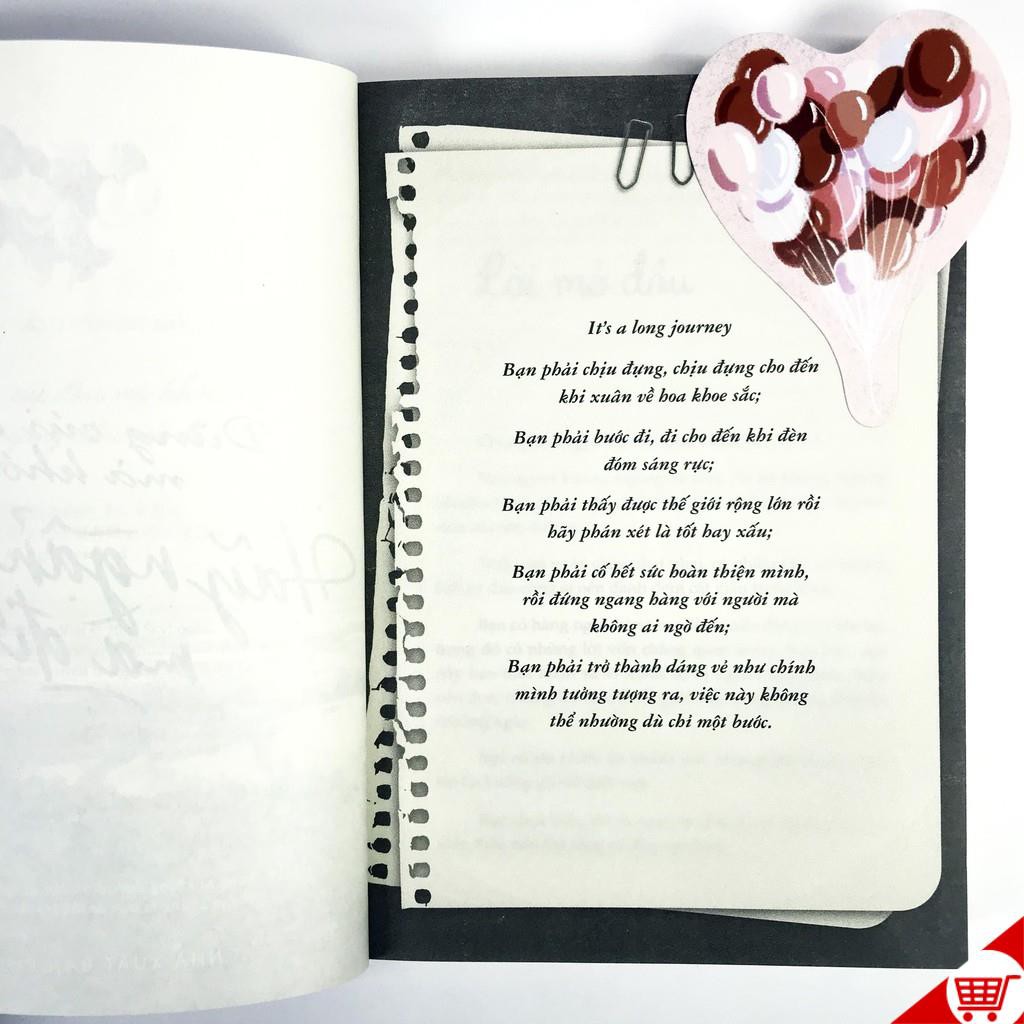 Lời mở đầu
It's a long journey
Bạn phải chịu đựng, chịu đựng cho đến
khi xuân về hoa khoe sắc;
Bạn phải bước đi, đi cho đến khi đèn
đóm sáng rực;
Bạn phải thấy được thế giới rộng lớn rồi
hãy phán xét là tốt hay xấu;
Bạn phải cố hết sức hoàn thiện mình,
rồi đứng ngang hàng với người mà
không ai ngờ đến;
Bạn phải trở thành dáng vẻ như chính
mình tưởng tượng ra, việc này không
thể nhường dù chỉ một bước.